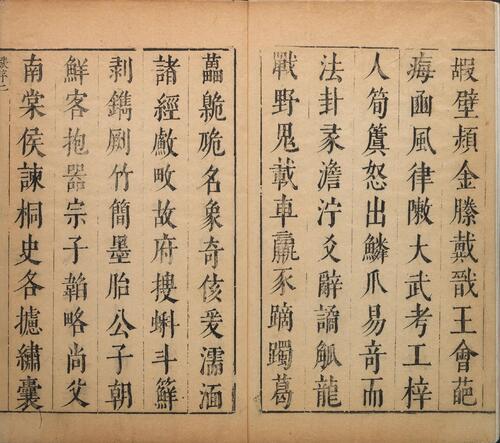 壁金縢戴王會葩
函風律大武考工梓
人筍簨怒出鱗爪易竒而
法卦彖澹濘爻辭譎觚龍
戰野鬼載車羸豕蹢躅葛
藟臲硊名象奇侅爰濡湎
諸經敽敀故府搜蝌斗鮮
剥鐫劂竹簡墨胎公子朝
鮮客抱器宗子韜略尚父
南棠侯諫桐史各攄繡囊
序二